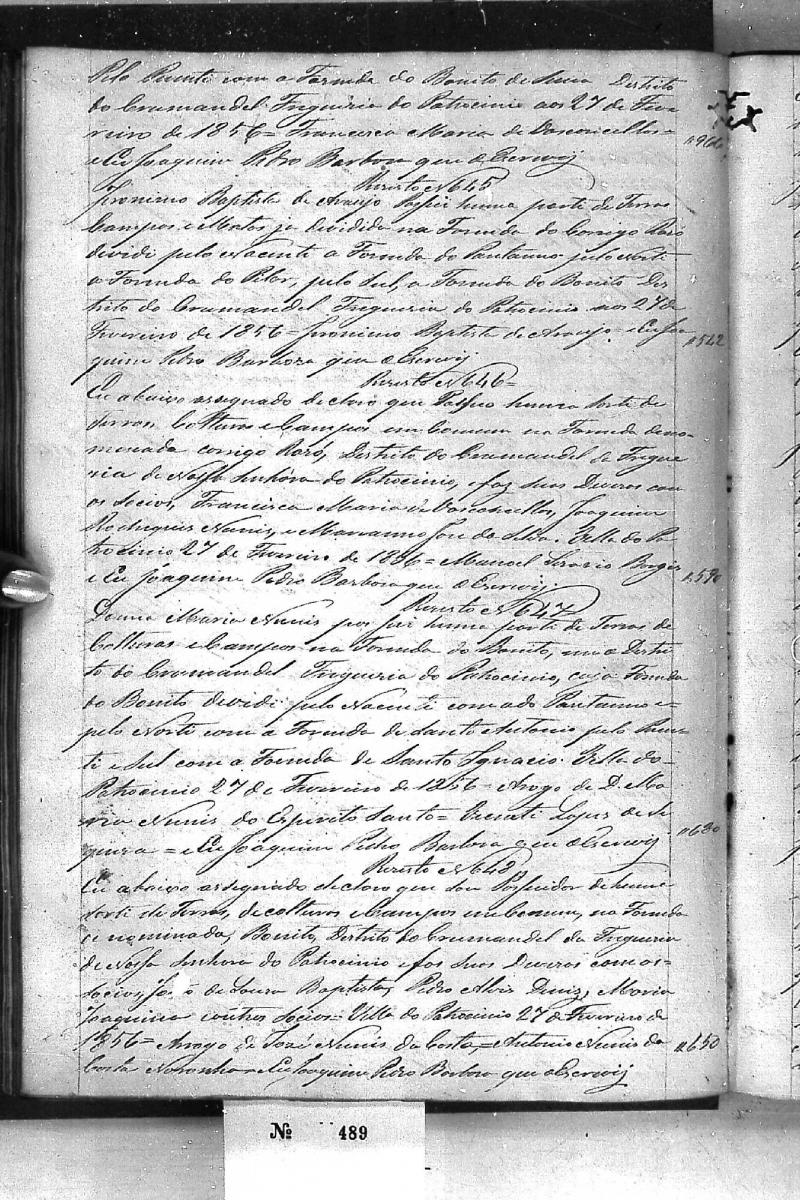 Pelo Puente com a Fasenda do Bonito de Sima Destrito
do Crumandel Freguezia do Patrocinio aos 27 de Feve
reiro de 1856 = Francisca Maria de Vasconcellos =
e Eu Joaquim Pedro Barboza que o Escrevij
n960
Rezisto N 645
Jeronimo Baptista de Araujo Possue huma parte de Terras
Campos e Matos ja dividida na Fasenda do Corrigo Razo
divide pelo Nacente a Fasenda do Pantanno pelo Norte
a Fasenda do Pilar, pelo Sul, a Fasenda do Bonito Des
trito do Crumandel Freguezia do Patrocinio aos 27 de
Fevereiro de 1856 = Jeronimo Baptista de Araujo e Eu Joa
n542
quim Pedro Barboza que o Escrevij
Rezisto N 646 =
Eu abaixo assegnado declaro que Possuo huma sorte de
Terras Colturas e Campos em Comum na Fasenda deno
menada corrigo Razo, Destrito do Crumandel da Fregue
zia de Nossa Senhora do Patrocinio, e faz suas Divizas com
os Socios, Francisca Maria de Vasconcellos, Joaquim
Rodrigues Nunis, e Marianno Jose da Silva. Villa do Pa
trocinio 27 de Fevereiro de 1856 = Manoel Borges
n590
e Eu Joaquim Pedro Barboza que o Escrevij.
Rezisto N 647
Donna Maria Nunis possue huma parte de Terras de
Colturas e Campos na Fasenda do Bonito, no Destri
to do Crumandel Freguezia do Patrocinio, cuja Fasenda
do Bonito devide pelo Nacente com a do Pantanno e
pelo Norte com a Fasenda de Santo Antonio pelo Puen
te e Sul com a Fasenda de Santo Ignacio. Villa do
Patrocinio 27 de Fevereiro de 1856 = Arogo de D. Ma
ria Nunis do Espirito Santo = Lopes de Se
n630
queira = e Eu Joaquim Pedro Barboza que o Escrevij
Rezisto N 648
Eu abaixo assegnado declaro que sou Possuidor de huma
sorte de Terras, de colturas e Campos em Comum, na Fasenda
de nominada, Bonito, Destrito do Crumandel da Freguezia
de Nossa Senhora do Patrocinio e fas suas Divizas com os
socios, João de Souza Baptista, Pedro Alvis Diniz, Maria
Joaquina e outros Socios = Villa do Patrocinio 27 de Fevereiro de
1856 = Arogo de José Nunis da Costa, = Antonio Nunis da
n650
Costa Noronha e Eu Joaquim Pedro Barboza que o Escrevij
Nº 489